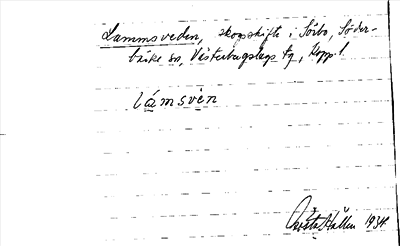 Lammsveden, skogsskifte i Sörbo, Söder-
bärke sn, Västerbergslags tg, Kopp. l.
lámsvèn
Hallen 1934